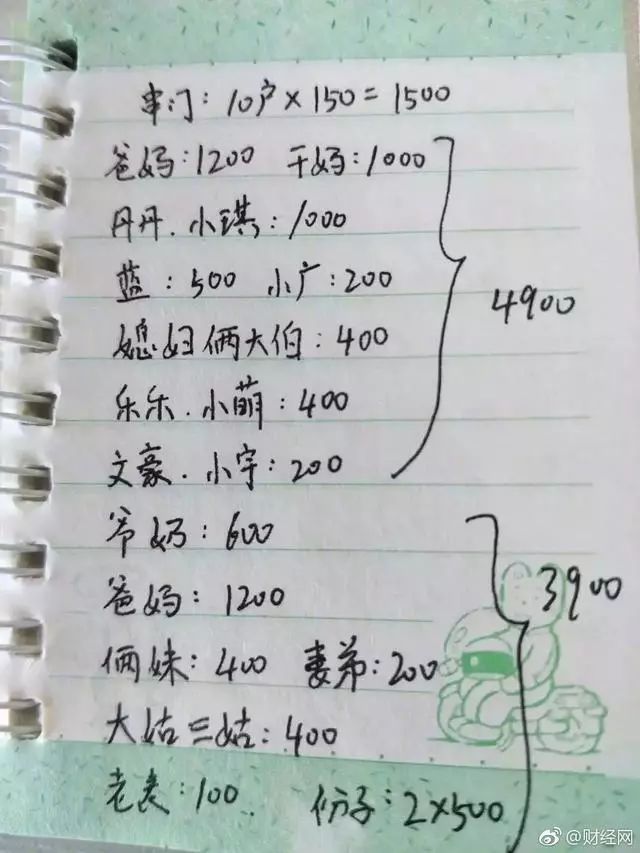 串门：10户×150=1500
爸妈：1200 干妈：1000
丹丹.小琪：1000
蓝：500 小广：200
4900
媳妇俩大伯：400
乐乐.小萌：400
文豪.小宇：200
爷奶：600
爸妈：1200
3900
俩妹：400 妻弟：200
大姑三姑：400
老表：100 份子：2×500
@财经网